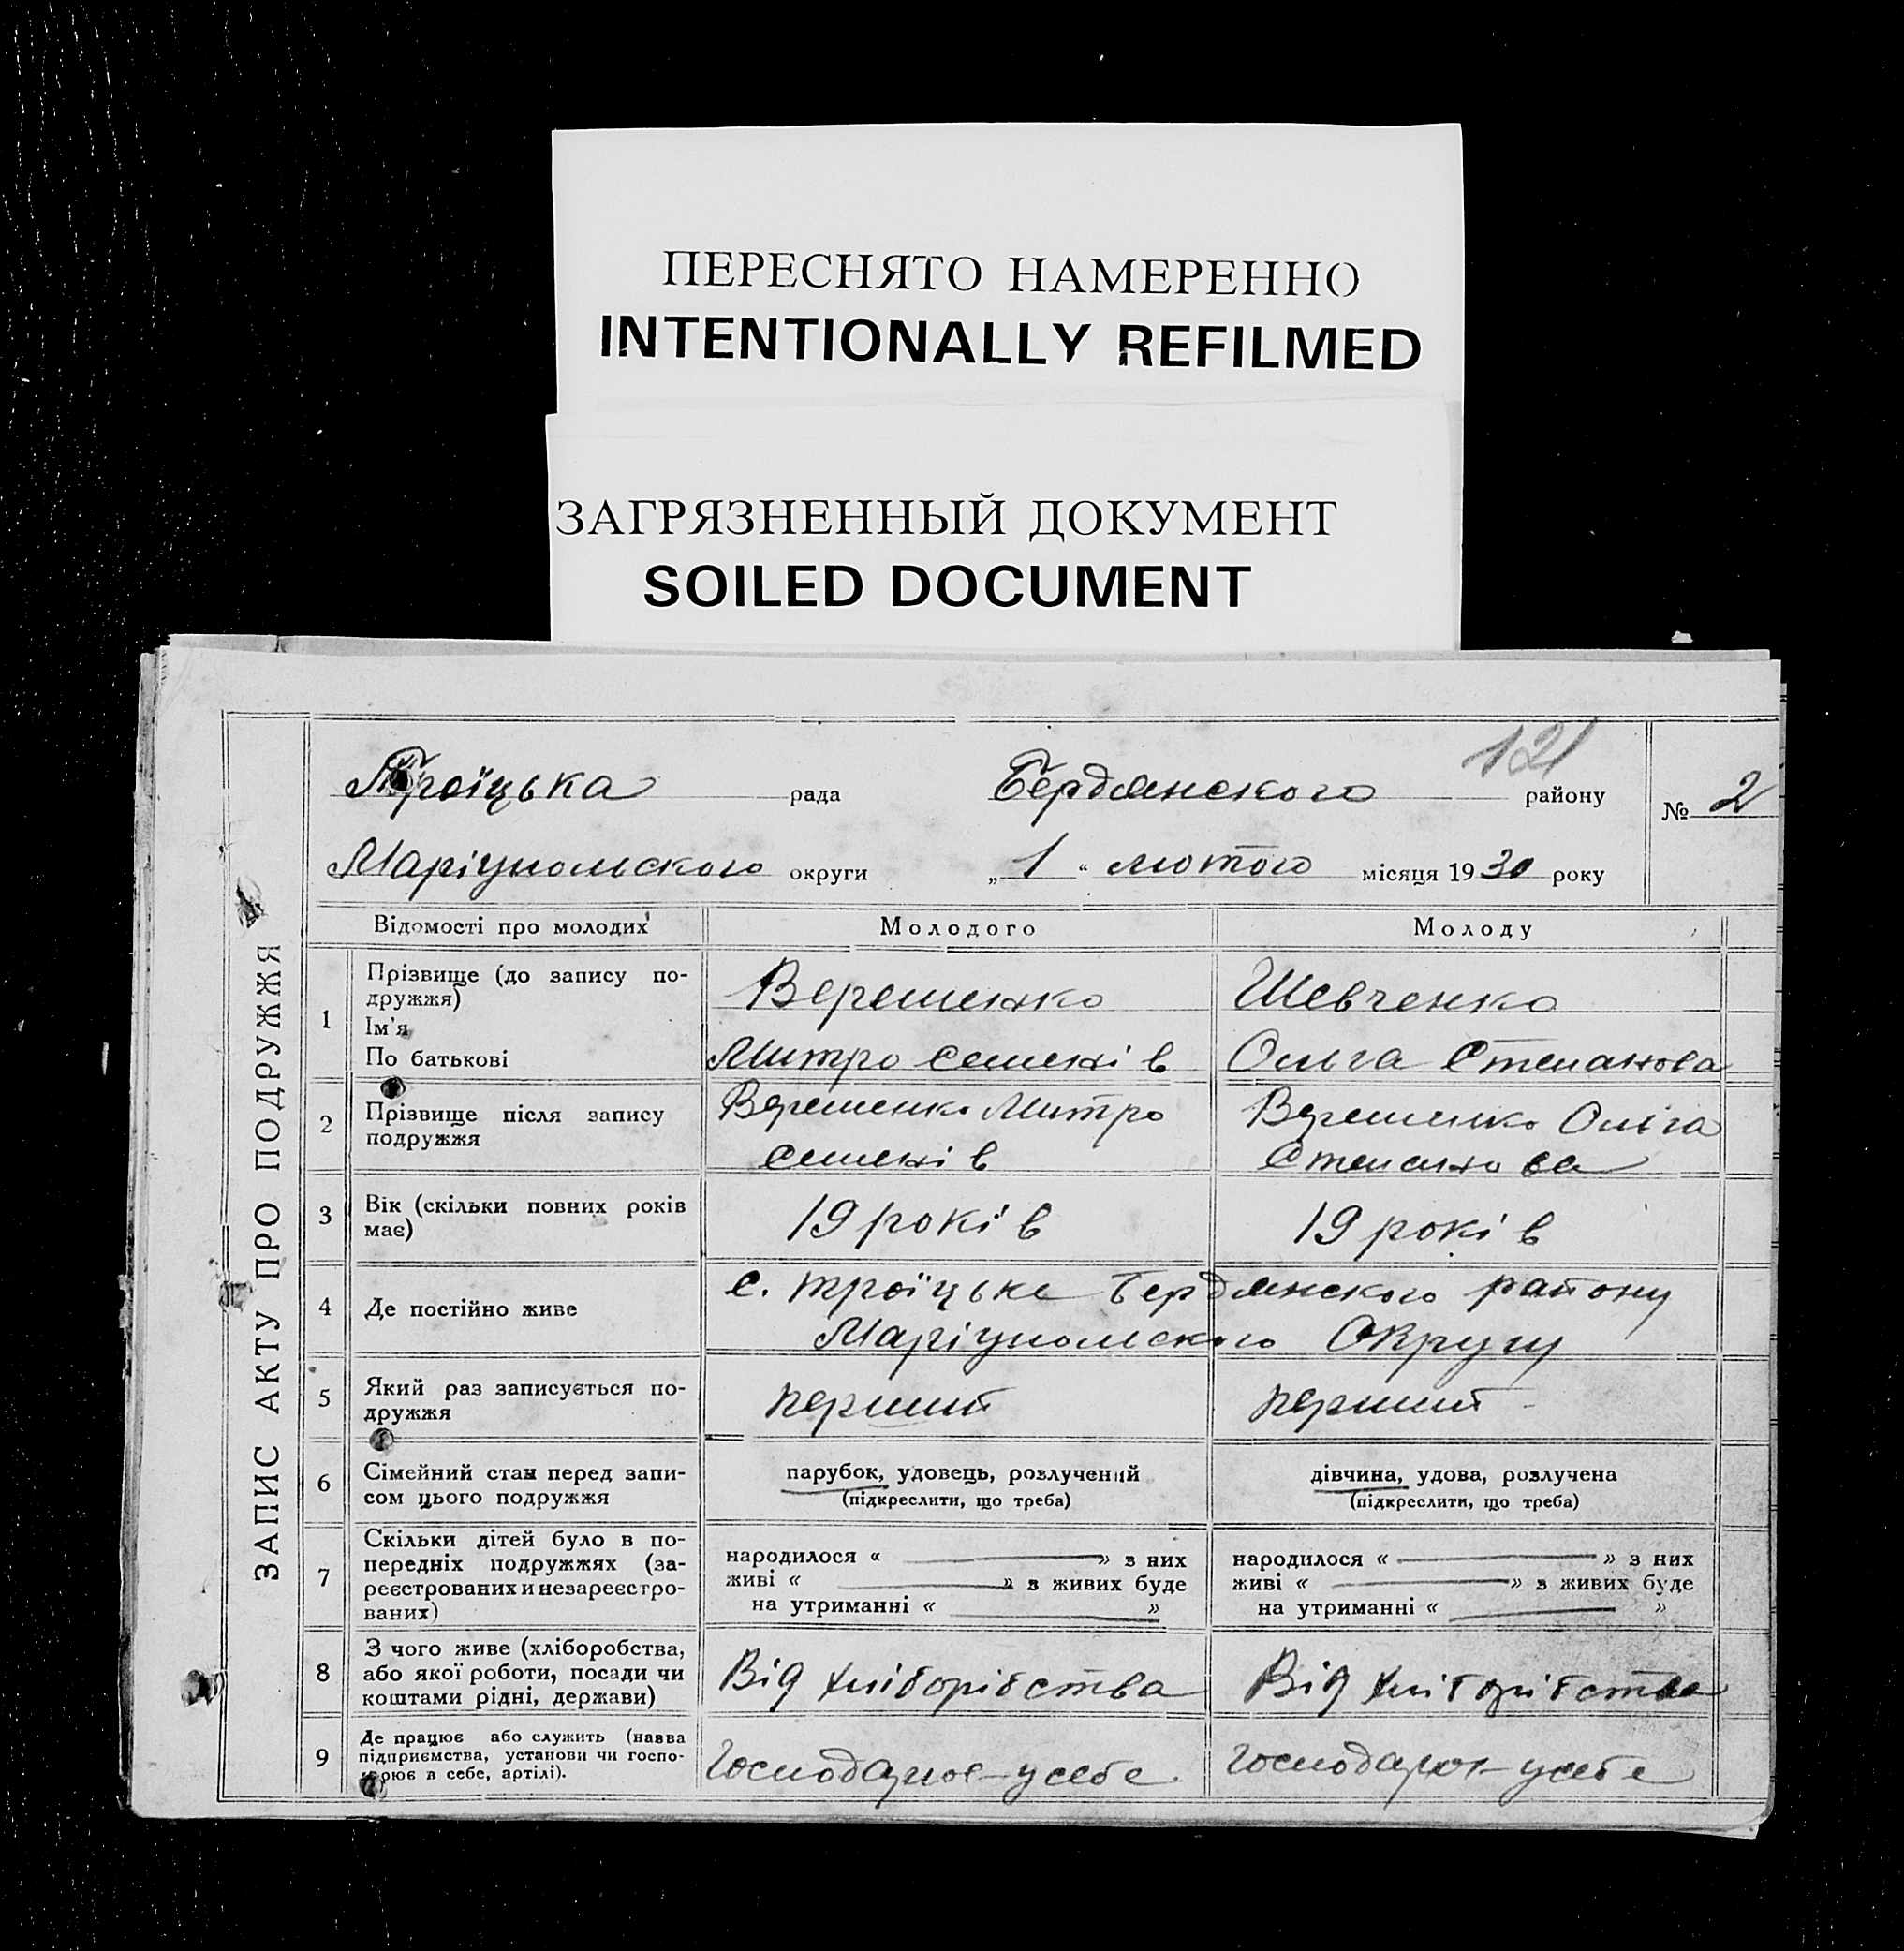 ПЕРЕСНЯТО НАМЕРЕННО
INTENTIONALLY REFILMED
ЗАГРЯЗНЕННЫЙ ДОКУМЕНТ
SOILED DOCUMENT
121
Троїцька рада Бердянского району № 2
Маріупольского округи „1“ лютого місяця 1930 року
ЗАПИС АКТУ ПРО ПОДРУЖЖЯ
Відомості про молодих Молодого Молоду
1 Прізвище (до запису по-
дружжя)
Ім'я
По батькові
Верешенко
Митро Семенів
Шевченко
Ольга Степанова
2 Прізвище після запису
подружжя
Верешенко Митро
Семенів
Верешенко Ольга
Степанова
3 Вік (скільки повних років
має)
19 років 19 років
4 Де постійно живе
с. Троїцьке Бердянского району
Маріупольского Округу
5 Який раз записується по-
дружжя
перший перший
6 Сімейний стан перед запи-
сом цього подружжя
парубок, удовець, розлучений
(підкреслити, що треба)
дівчина, удова, розлучена
(підкреслити, що треба)
7 Скільки дітей було в по-
передніх подружжях (за-
реєстрованих и незареєстро-
ваних)
народилося « » з них
живі « » з живих буде
на утриманні « »
народилося « » з них
живі « » з живих буде
на утриманні « »
8 З чого живе (хліборобства,
або якої роботи, посади чи
коштами рідні, держави)
Від хліборібства Від хліборібства
9 Де працює або служить (назва
підприємства, установи чи госпо-
рює в себе, артілі).
Господарює – у себе Господарює – у себе